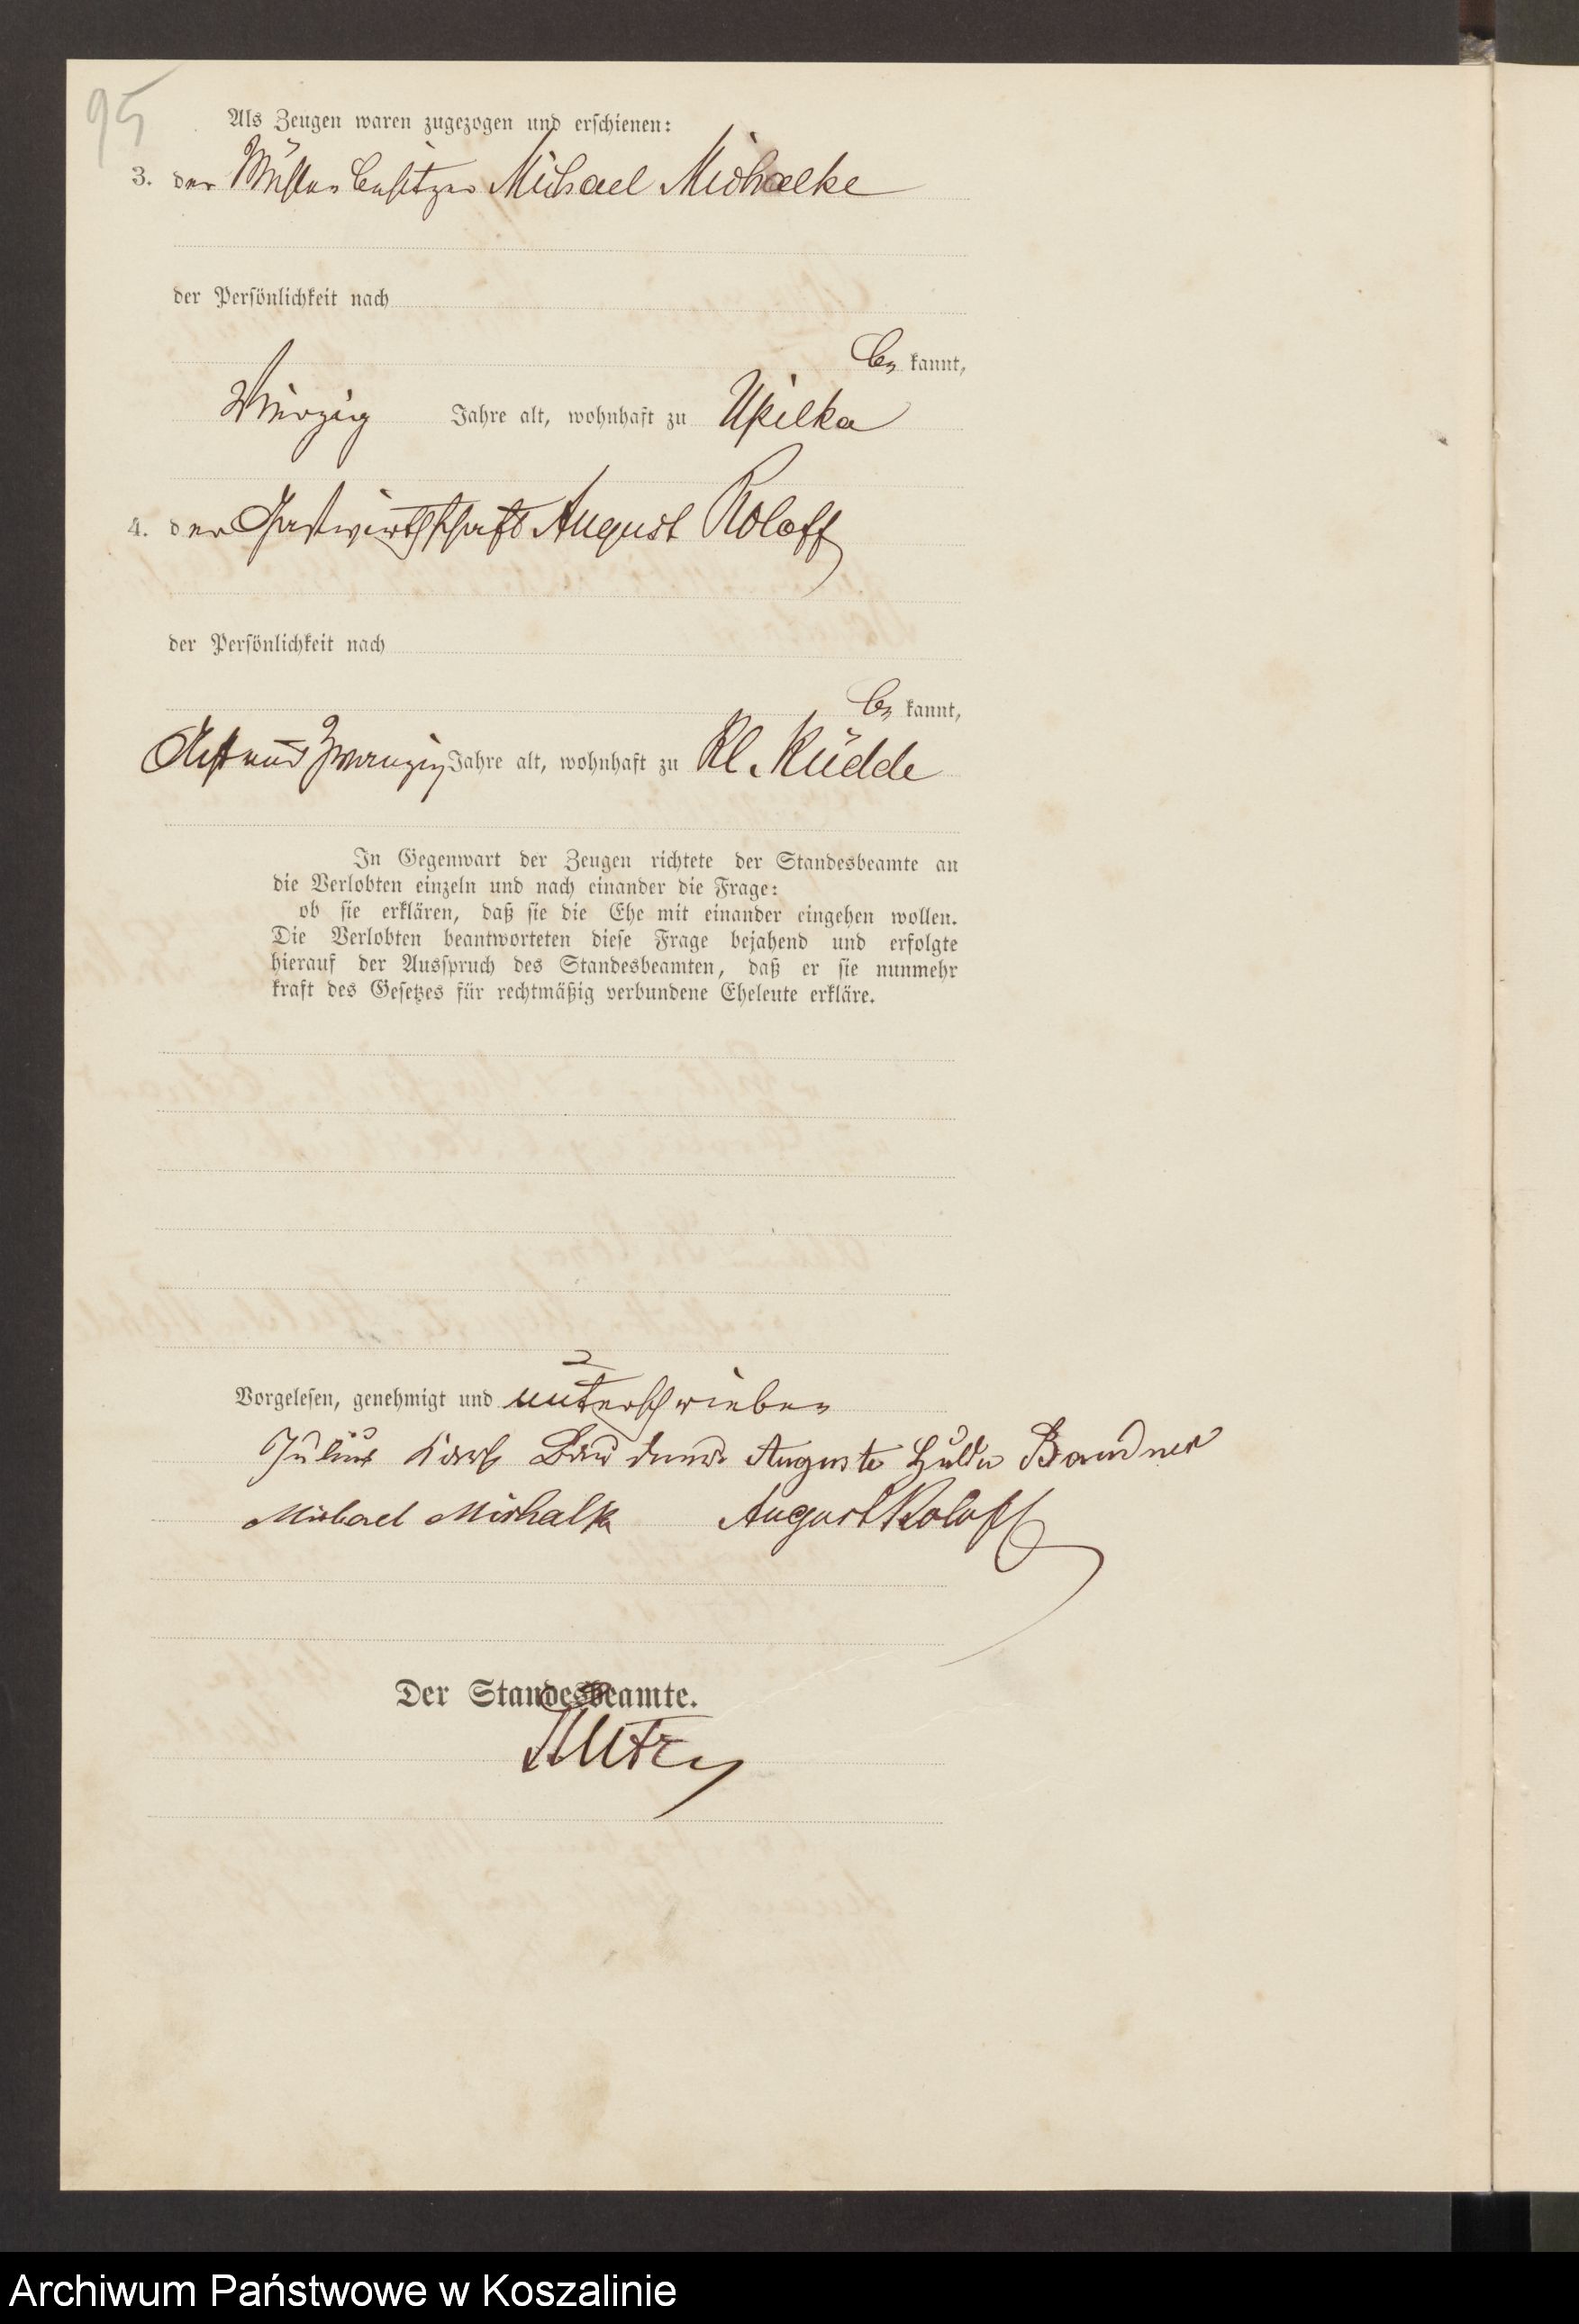 95
Als Zeugen waren zugezogen und erschienen:
3. der Mühlenbesitzer Michael Michaelke
der Persönlichkeit nach
be kannt,
Vierzig Jahre alt, wohnhaft zu Upilka
4. der Gastwirthschaft August Roloff
der Persönlichkeit nach
be kannt,
Acht und Zwanzig Jahre alt, wohnhaft zu Kl. Küdde
In Gegenwart der Zeugen richtete der Standesbeamte an
die Verlobten einzeln und nach einander die Frage:
ob sie erklären, daß sie die Ehe mit einander eingehen wollen.
Die Verlobten beantworteten diese Frage bejahend und erfolgte
hierauf der Ausspruch des Standesbeamten, daß er sie nunmehr
kraft des Gesetzes für rechtmäßig verbundene Eheleute erkläre.
Vorgelesen, genehmigt und unterschrieben
Julius Auguste Hulda
Michael Michalke August Roloff
Der Standesbeamte.
Archiwum Państwowe w Koszalinie